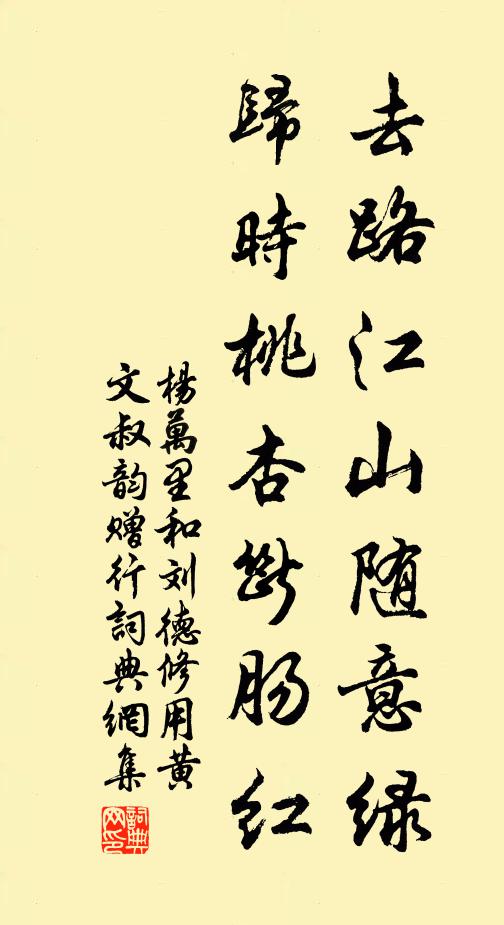 去路江山随意绿
歸時桃杏断肠红
楊萬里和刘德修用黄
文叔韵赠行詞典網集
詞典
网印